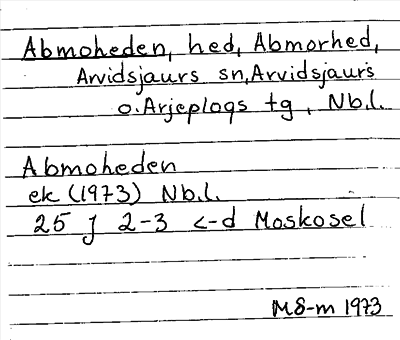 Abmoheden, hed, Abmorhed,
Arvidsjaurs sn, Arvidsjaurs
o. Arjeplogs tg, Nb.l.
Abmoheden
ek (1973) Nb.l.
25 J 2-3 c-d Moskosel
MS-m 1973